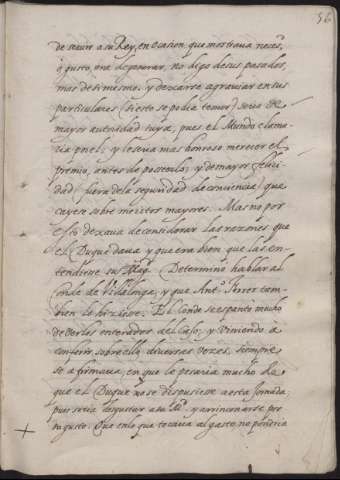 56
de seruir a su Rey, en ocasion que mostraua neces.d
ó gusto, era degenerar, no digo de sus pasados,
mas de si mismo. y dexarse agrauiar en sus
particulares (si esto se podia temer) seria de
mayor autoridad suya, pues el Mundo clama-
ria por el: y le seria mas honroso merecer el
premio, antes de posseerlo; y de mayor felici-
dad (fuera de la seguridad de conciencia) que
cayese sobre meritos mayores. Mas no por
esto dexaua de considerar las razones que
el Duque daua y que era bien que las en-
tendiesse su Mag.d Determinó hablar al
Conde de Villalonga, y que Ant.o Ferrer tam-
bien lo hiziesse. El Conde se espantó mucho
de verlos enterados del caso, y viniendo a
conferir sobre ello diuersas vezes, siempre
se afirmaua, en que le pesaria mucho de
que el Duque no se dispusiesse a esta Jornada,
pues seria disgustar a su M.d y arrinconarse por
su gusto. Que en lo que tocaua al gasto, no pondria